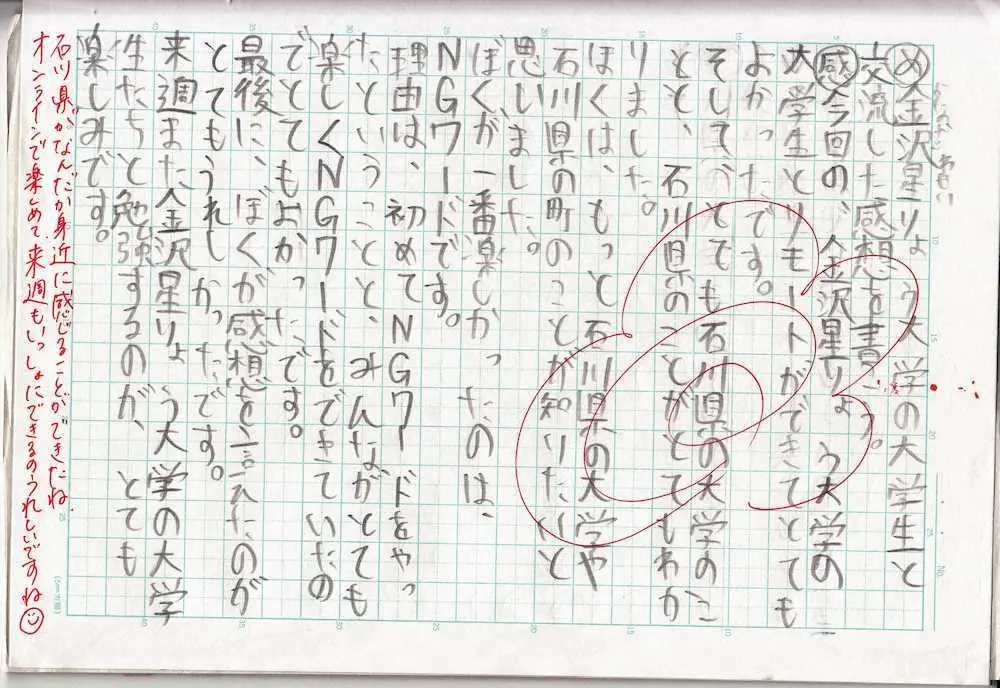 め金沢星りょう大学の大学生と
交流した感想を書こう。
感今回の、金沢星りょう大学の
大学生とリモートができてとても
よかったです。
そしてとても石川県の大学のこ
とと、石川県のことがとてもわか
りました。
ぼくは、もっと石川県の大学や
石川県の町のことが知りたいと
思いました。
ぼくが一番楽しかったのは、
NGワードです。
理由は、初めてNGワードをやっ
たということと、みんながとても
楽しくNGワードをできていたの
でとてもよかったです。
最後に、ぼくが感想を言えたのが
とてもうれしかったです。
来週また金沢星りょう大学の大学
生たちと勉強するのが、とても
楽しみです。
石川県がなんだか身近に感じることができたね
オンラインで楽しめて来週もいっしょにできるのうれしいですね